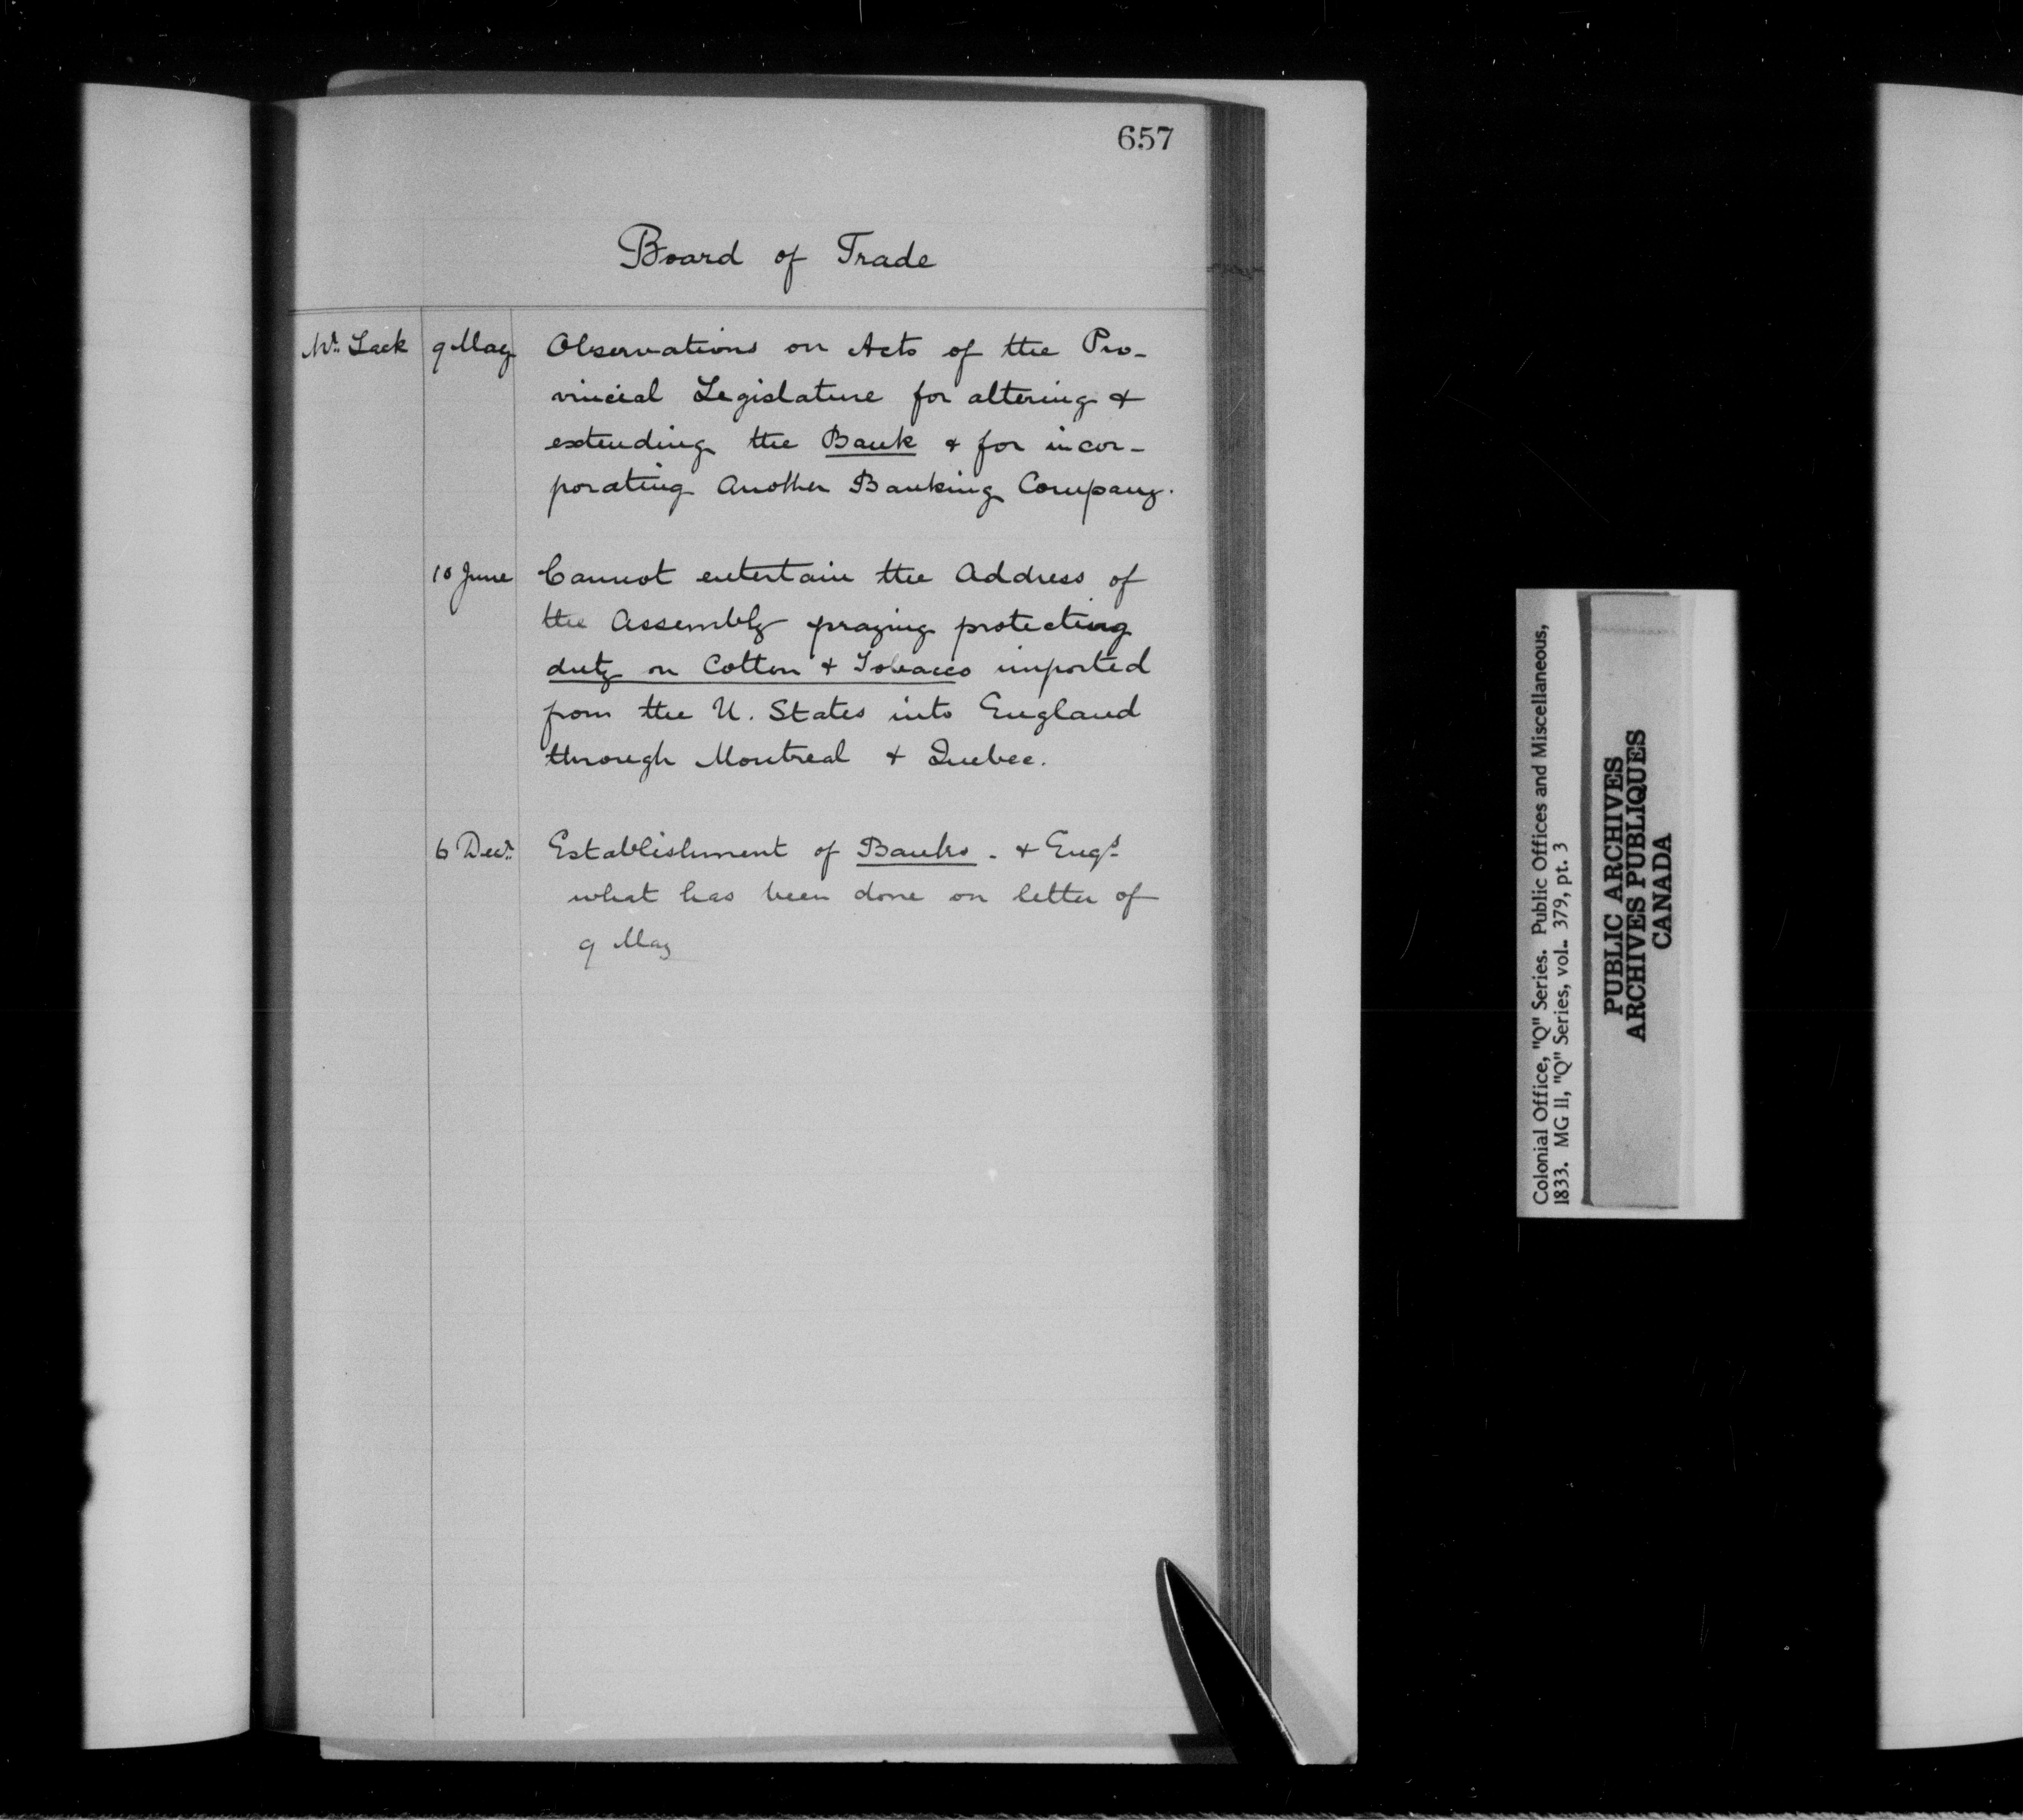 657
Board of Trade
Mr. Lack 9 May Observations on Acts of the Pro-
vincial Legislature for altering &
extending the Bank & for incor-
porating Another Banking Company.
10 June Cannot entertain the Address of
the Assembly praying protecting
duty on Cotton & Tobacco imported
from the U. States into England
through Montreal & Quebec.
6 Decr. Establishment of Banks. & Engs
what has been done on letter of
9 May
Colonial Office, "Q" Series. Public Offices and Miscellaneous,
1833. MG 11, "Q" Series, vol. 379, pt. 3
PUBLIC ARCHIVES
ARCHIVES PUBLIQUES
CANADA